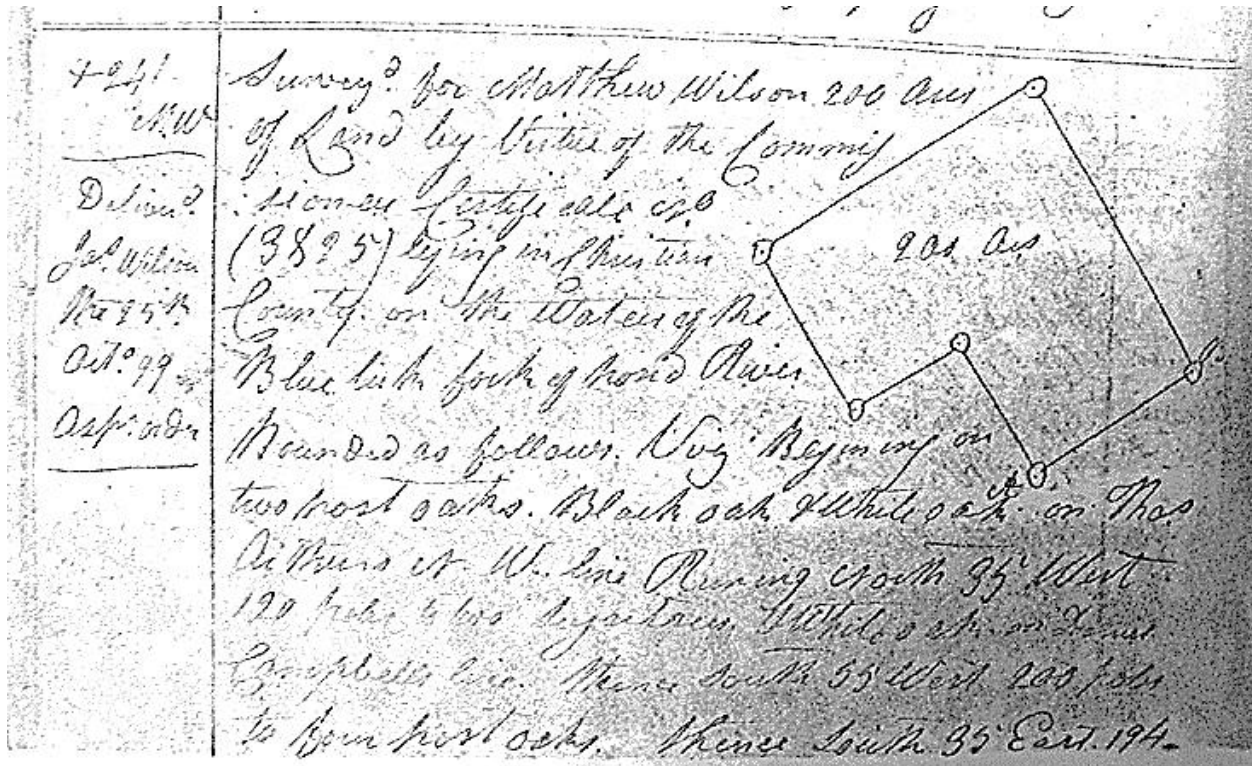 +241
N.W
Deliver'd
Jas. Wilson
the 25th
Octo. 99
As pr. order
Survey'd for Matthew Wilson 200 Acres
of Land by Virtue of the Commis
sioners Certificate No
(3825) lying in Christian
County on the Waters of the
Blue lick fork of pond River
Bounded as follows. Viz Begining on
two post oaks. Black oak & White oak on Thos
N. W. line Runing North 35 West
120 poles to two White oak on
Campbells line. Thence South 55 West 200 poles
to four post oaks. Thence South 35 East. 194
200 Acs
A